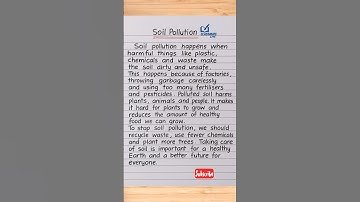 Soil Pollution
Soil pollution happens when
harmful things like plastic,
chemicals and waste make
the soil dirty and unsafe.
This happens because of factories,
throwing garbage carelessly
and using too many fertilisers
and pesticides. Polluted soil harms
plants, animals and people. It makes
it hard for plants to grow and
reduces the amount of healthy
food we can grow.
To stop soil pollution, we should
recycle waste, use fewer chemicals
and plant more trees. Taking care
of soil is important for a healthy
Earth and a better future for
everyone.
Subscribe